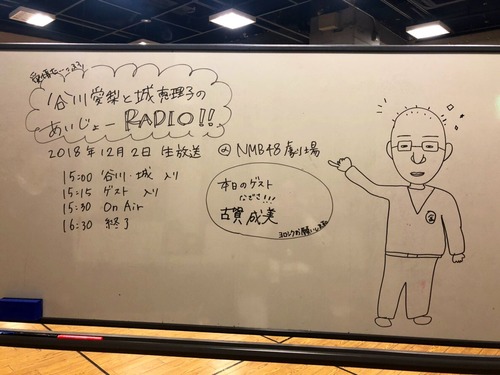 谷川愛梨と城恵理子の
あいじょーRADIO!!
2018年12月2日 生放送 @ NMB48劇場
15:00 谷川・城 入り
15:15 ゲスト 入り
15:30 On Air
16:30 終了
本日のゲスト
なぎさ!!!
古賀成美
ヨロシクお願いします